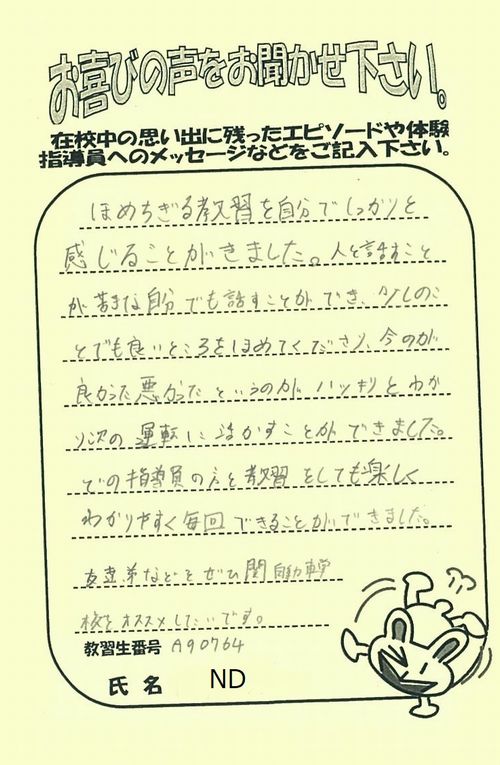 お喜びの声をお聞かせ下さい。
在校中の思い出に残ったエピソードや体験
指導員へのメッセージなどをご記入下さい。
ほめちぎる教習を自分でしっかりと
感じることができました。人と話すこと
が苦手な自分でも話すことができ、少しのこ
とでも良いところをほめてくださり、今のが
良かった悪かったというのが、ハッキリとわか
り次の運転に活かすことができました。
どの指導員の方と教習をしても楽しく
わかりやすく毎回できることができました。
友達、弟などにぜひ関自動車学
校をオススメしたいです。
教習生番号 A90764
氏名 ND